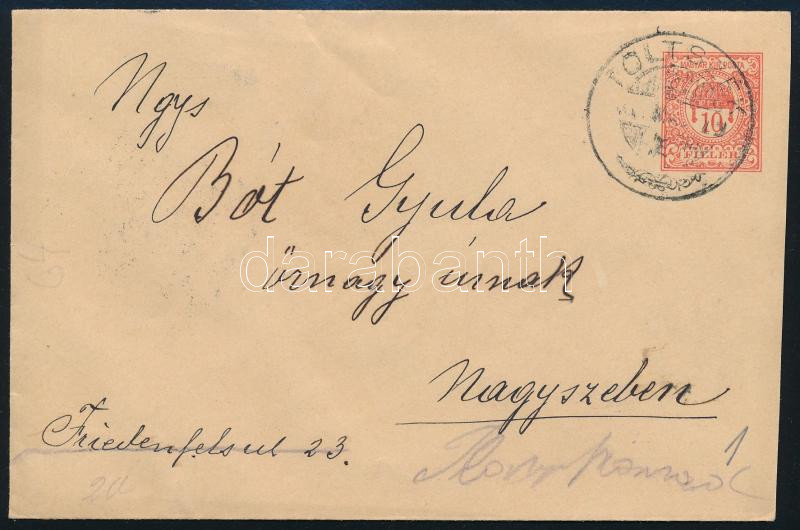 Ngys
Bót Gyula
őrnagy úrnak
Nagyszeben
Friedenfelsut 23.
MAGYAR KIR. POSTA
10
FILLÉR
darabanth
64
1